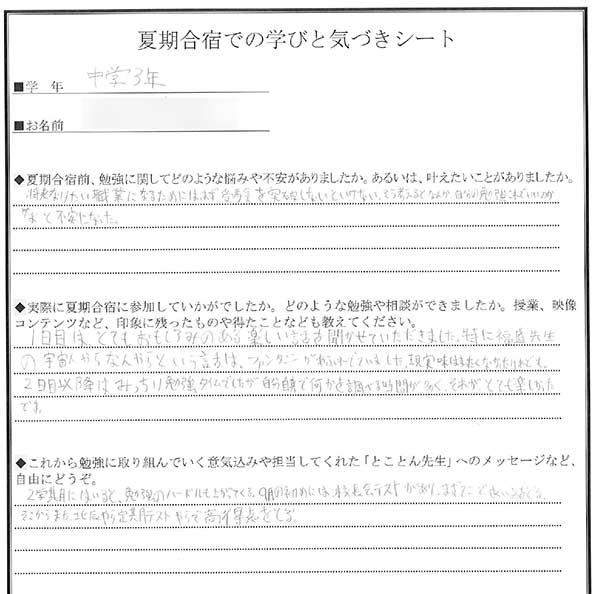 夏期合宿での学びと気づきシート
■学　年　中学3年
■お名前
◆夏期合宿前、勉強に関してどのような悩みや不安がありましたか。あるいは、叶えたいことがありましたか。
将来なりたい職業になるためにはまず を突破しないといけない。そう考えるとなんか自分の勉強これでいいのか
なぁと不安になった。
◆実際に夏期合宿に参加していかがでしたか。どのような勉強や相談ができましたか。授業、映像
コンテンツなど、印象に残ったものや得たことなども教えてください。
1日目は、とてもおもしろみのある楽しい話を聞かせていただきました。特に福盛先生
の宇宙人からなんやらという話は、ファンタジーがあふれていました。現実味はまったくなかったけれども。
2日目以降はみっちり勉強タイムでしたが自分自身で何かを調べる時間が多く、それがとても楽しかった
です。
◆これから勉強に取り組んでいく意気込みや担当してくれた「とことん先生」へのメッセージなど、
自由にどうぞ。
2学期にはいると、勉強のハードルも上がってくる。9月の初めには、校長会テストがあり、まずそこで良い をとる。
そこからまた、 やら定期テストやらで高得点をとる。